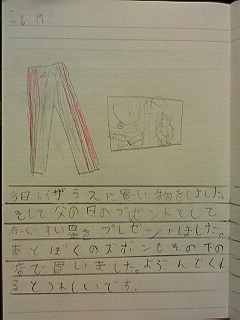 今日イザラスに買い物をしました。
そして父の日のプレゼントとして
かいすい墨をプレゼントしました。
あとぼくのズボンもその下の
店で買いました。よろこんでくれ
るとうれしいです。